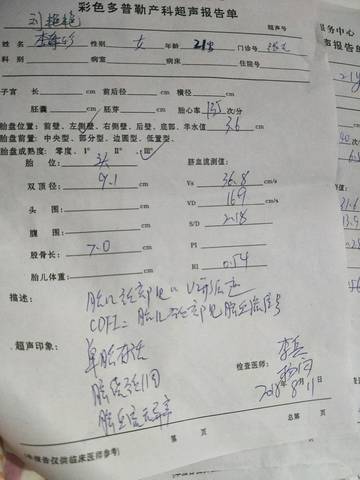 彩色多普勒产科超声报告单
超声号
姓名 性别 女 年龄 21岁 门诊号
科别 病室 病床 住院号
子宫 长 cm 前后径 cm 横径 cm
胚囊 cm 胚芽 cm 胎心率 135 次/分
胎盘位置:前壁、左侧壁、右侧壁、后壁、底部、羊水值 3.6 cm
胎盘前置:中央型、部分型、边圆型、低置型、
胎盘成熟度:零度、Ⅰ° Ⅱ° Ⅲ°
胎位: 头 脐血流测值:
双顶径: 9.1 cm Vs 36.8 cm/s
头围: cm VD 169 cm/s
腹围: cm S/D 2.18
股骨长: 7.0 cm PI
胎儿体重: RI 0.54
描述: 胎儿颈部见"U"形压迹
CDFI: 胎儿颈部见脐血流信号
超声印象: 单胎存活
脐绕颈1周
脐血流无异常
检查医师:
2018年8月11
第 页 总第 页
(本报告仅供临床医师参考)
务中心
声报告单